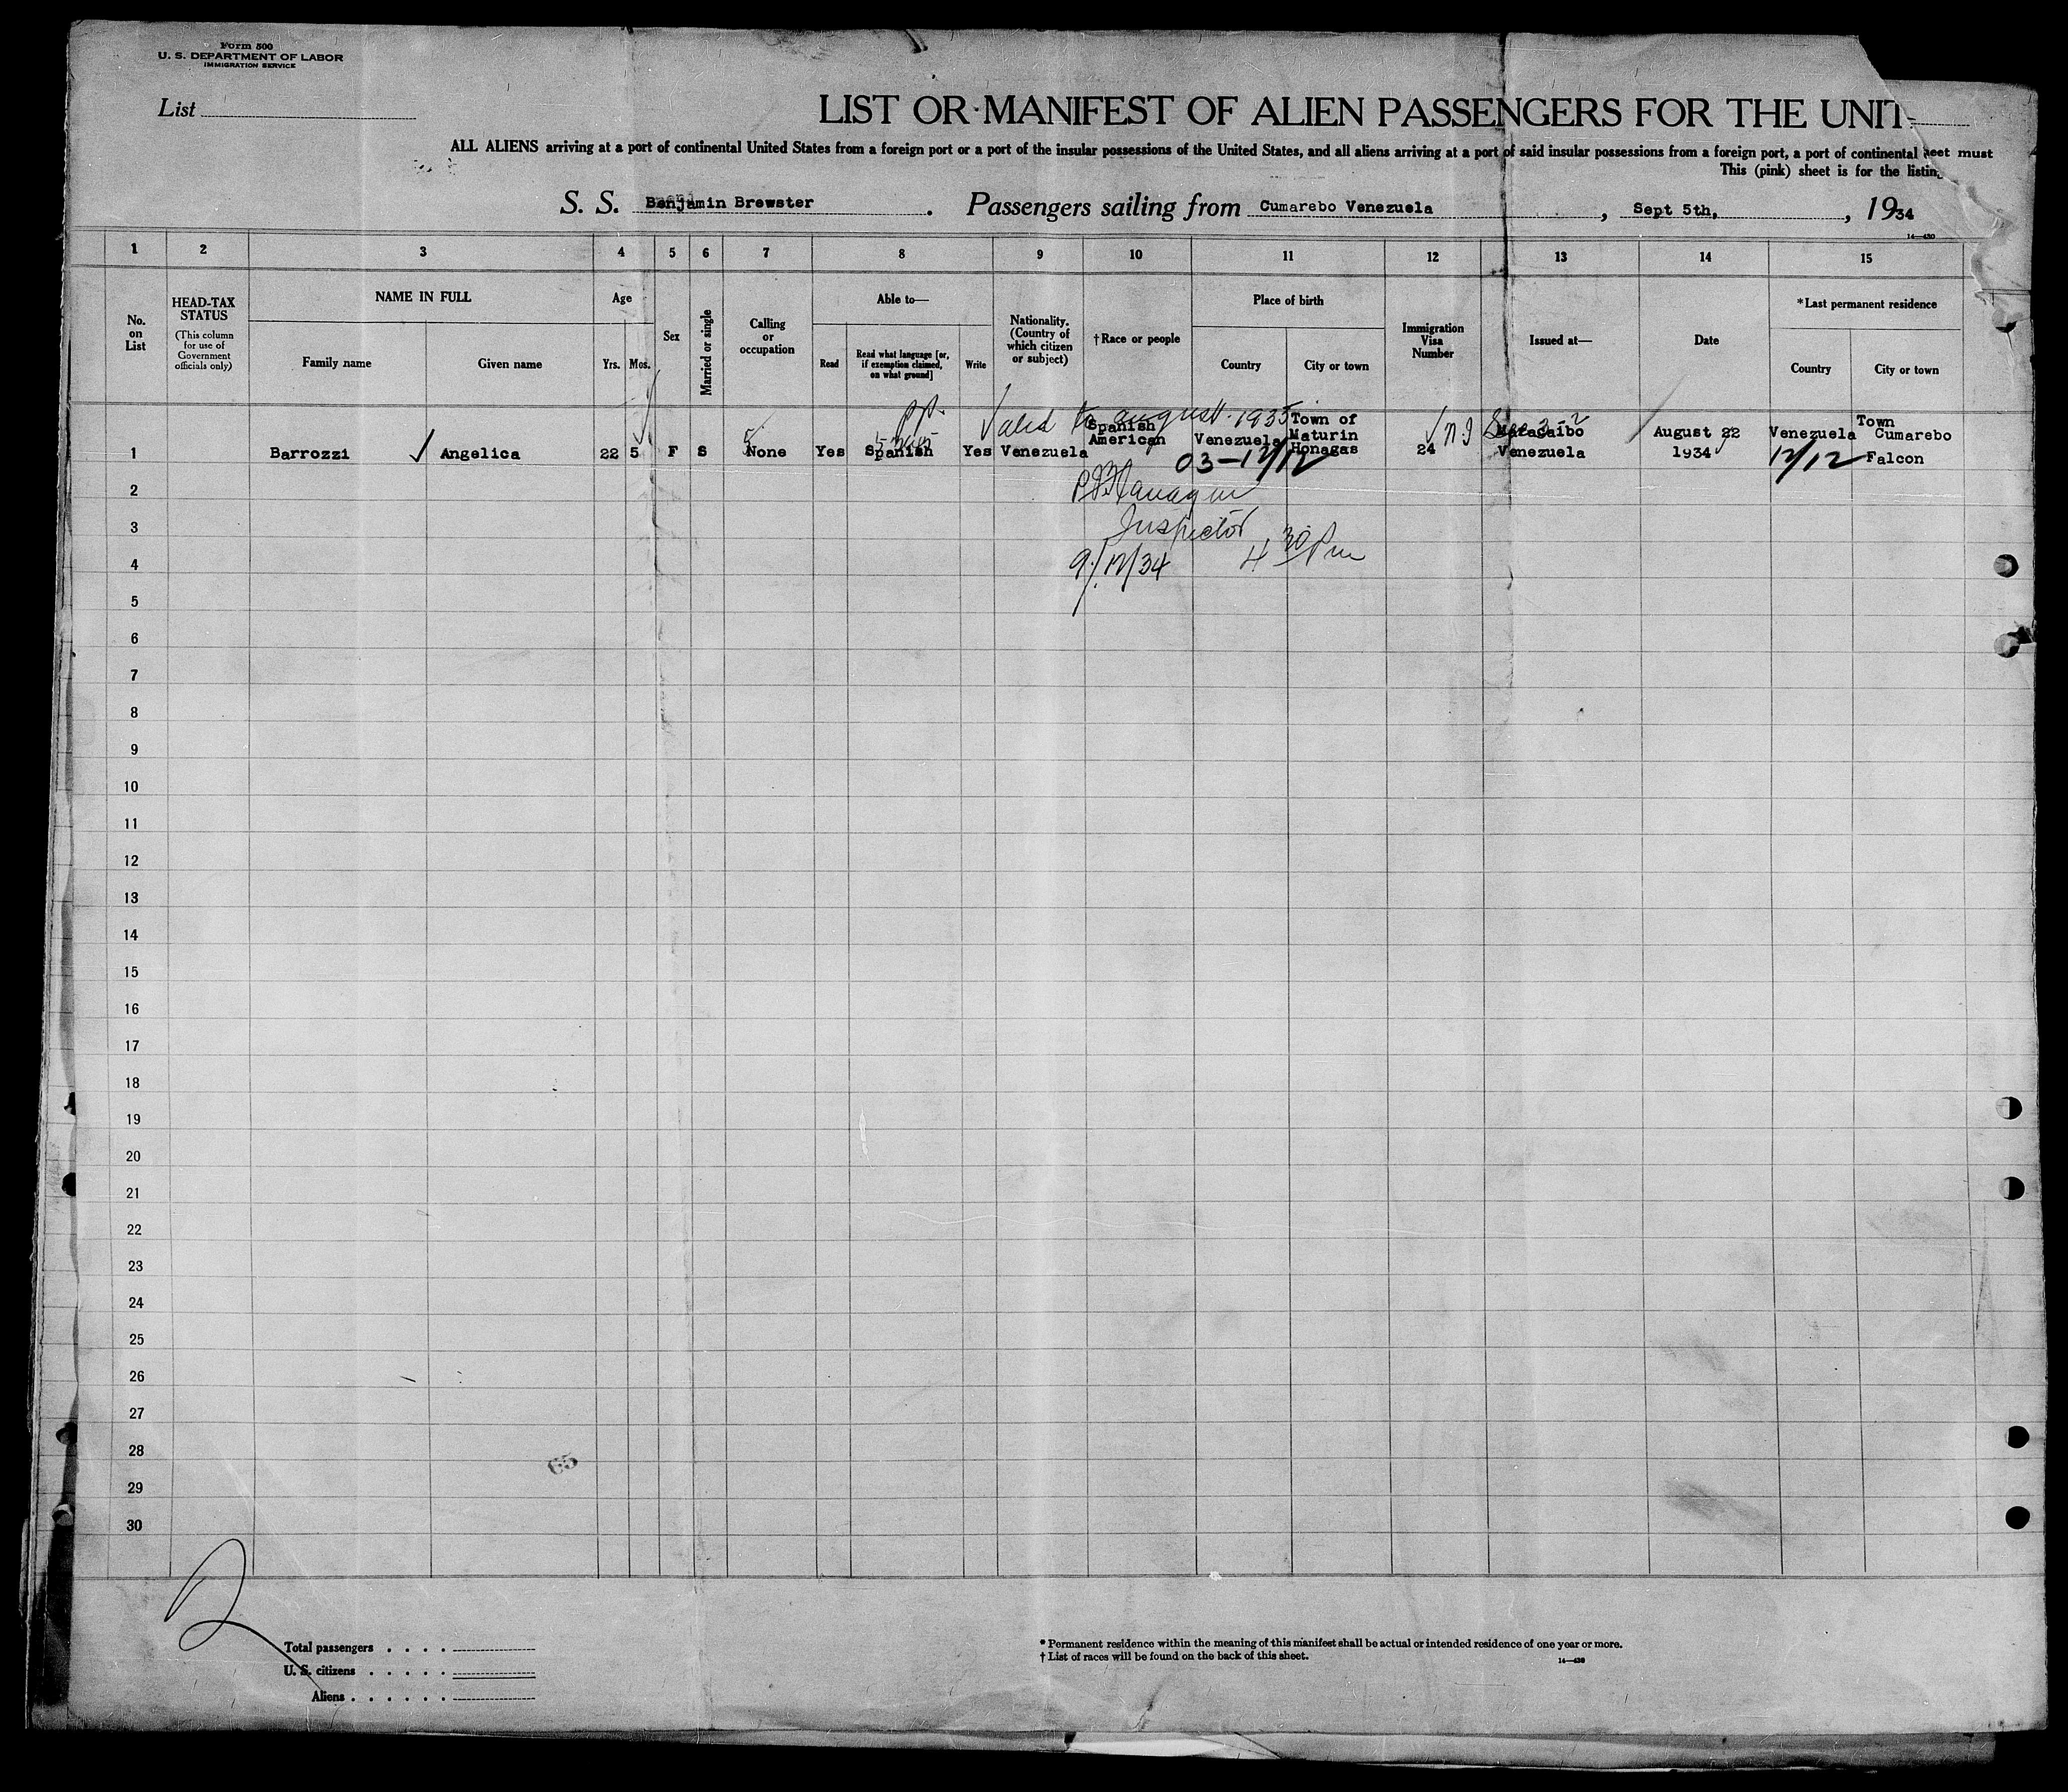 Form 500
U. S. DEPARTMENT OF LABOR
IMMIGRATION SERVICE
List
LIST OR MANIFEST OF ALIEN PASSENGERS FOR THE UNIT
ALL ALIENS arriving at a port of continental United States from a foreign port or a port of the insular possessions of the United States, and all aliens arriving at a port of said insular possessions from a foreign port, a port of continental
eet must
This (pink) sheet is for the listing
S. S. Benjamin Brewster. Passengers sailing from Cumarebo Venezuela, Sept 5th, , 1934
14—430
1 2 3 4 5 6 7 8 9 10 11 12 13 14 15
No. on List
HEAD-TAX STATUS
(This column for use of Government officials only)
NAME IN FULL
Family name
Given name
Age
Yrs.
Mos.
Sex
Married or single
Calling or occupation
Able to—
Read
Read what language [or, if exemption claimed, on what ground]
Write
Nationality. (Country of which citizen or subject)
†Race or people
Place of birth
Country
City or town
Immigration Visa Number
Issued at—
Date
*Last permanent residence
Country
City or town
Valid to August 1935
1 Barrozzi Angelica 22 5 F S None Yes Spanish Yes Venezuela Spanish American Venezuela Town of Maturin Monagas 24 Maracaibo Venezuela August 22 1934 Venezuela Town Cumarebo Falcon
03-12/12
12/12
2
Inspector
3
9/12/34 4 30 Pm
4
5
6
7
8
9
10
11
12
13
14
15
16
17
18
19
20
21
22
23
24
25
26
27
28
65
29
30
Total passengers . . . .
U. S. citizens . . . . .
Aliens . . . . . .
* Permanent residence within the meaning of this manifest shall be actual or intended residence of one year or more.
† List of races will be found on the back of this sheet.
14—430